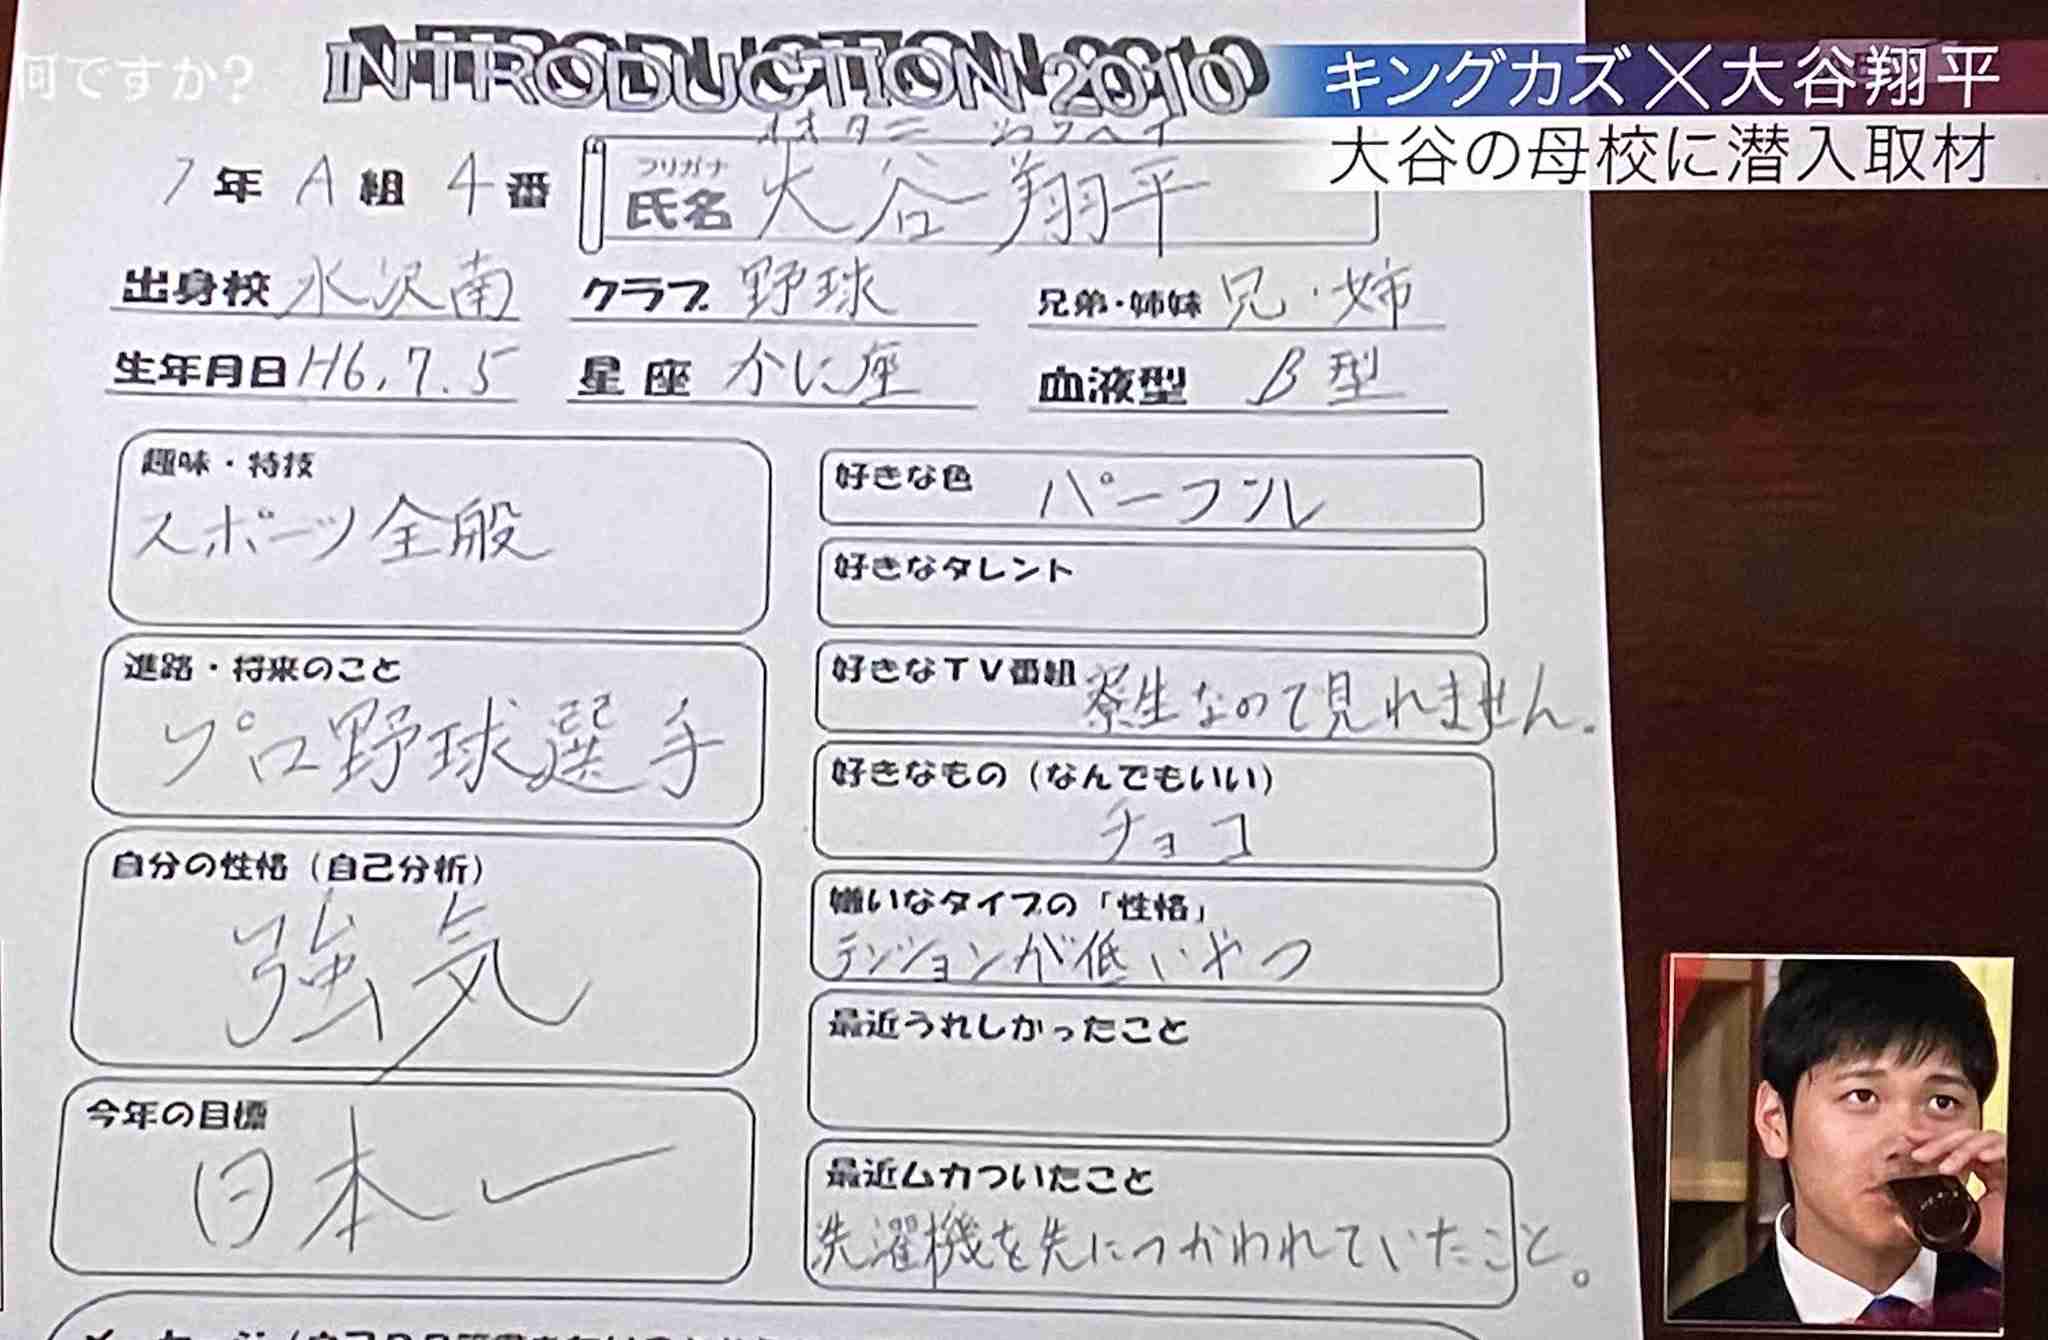 何ですか?
INTRODUCTION 2010
キングカズ×大谷翔平
大谷の母校に潜入取材
オオタニ ショウヘイ
1年 A組 4番
フリガナ
氏名 大谷 翔平
出身校 水沢南
クラブ 野球
兄弟・姉妹 兄・姉
生年月日 H6.7.5
星座 かに座
血液型 B型
趣味・特技
スポーツ全般
進路・将来のこと
プロ野球選手
自分の性格(自己分析)
強気
今年の目標
日本一
好きな色 パープル
好きなタレント
好きなTV番組 寮生なので見れません.
好きなもの(なんでもいい)
チョコ
嫌いなタイプの「性格」
テンションが低いやつ
最近うれしかったこと
最近ムカついたこと
洗濯機を先につかわれていたこと。